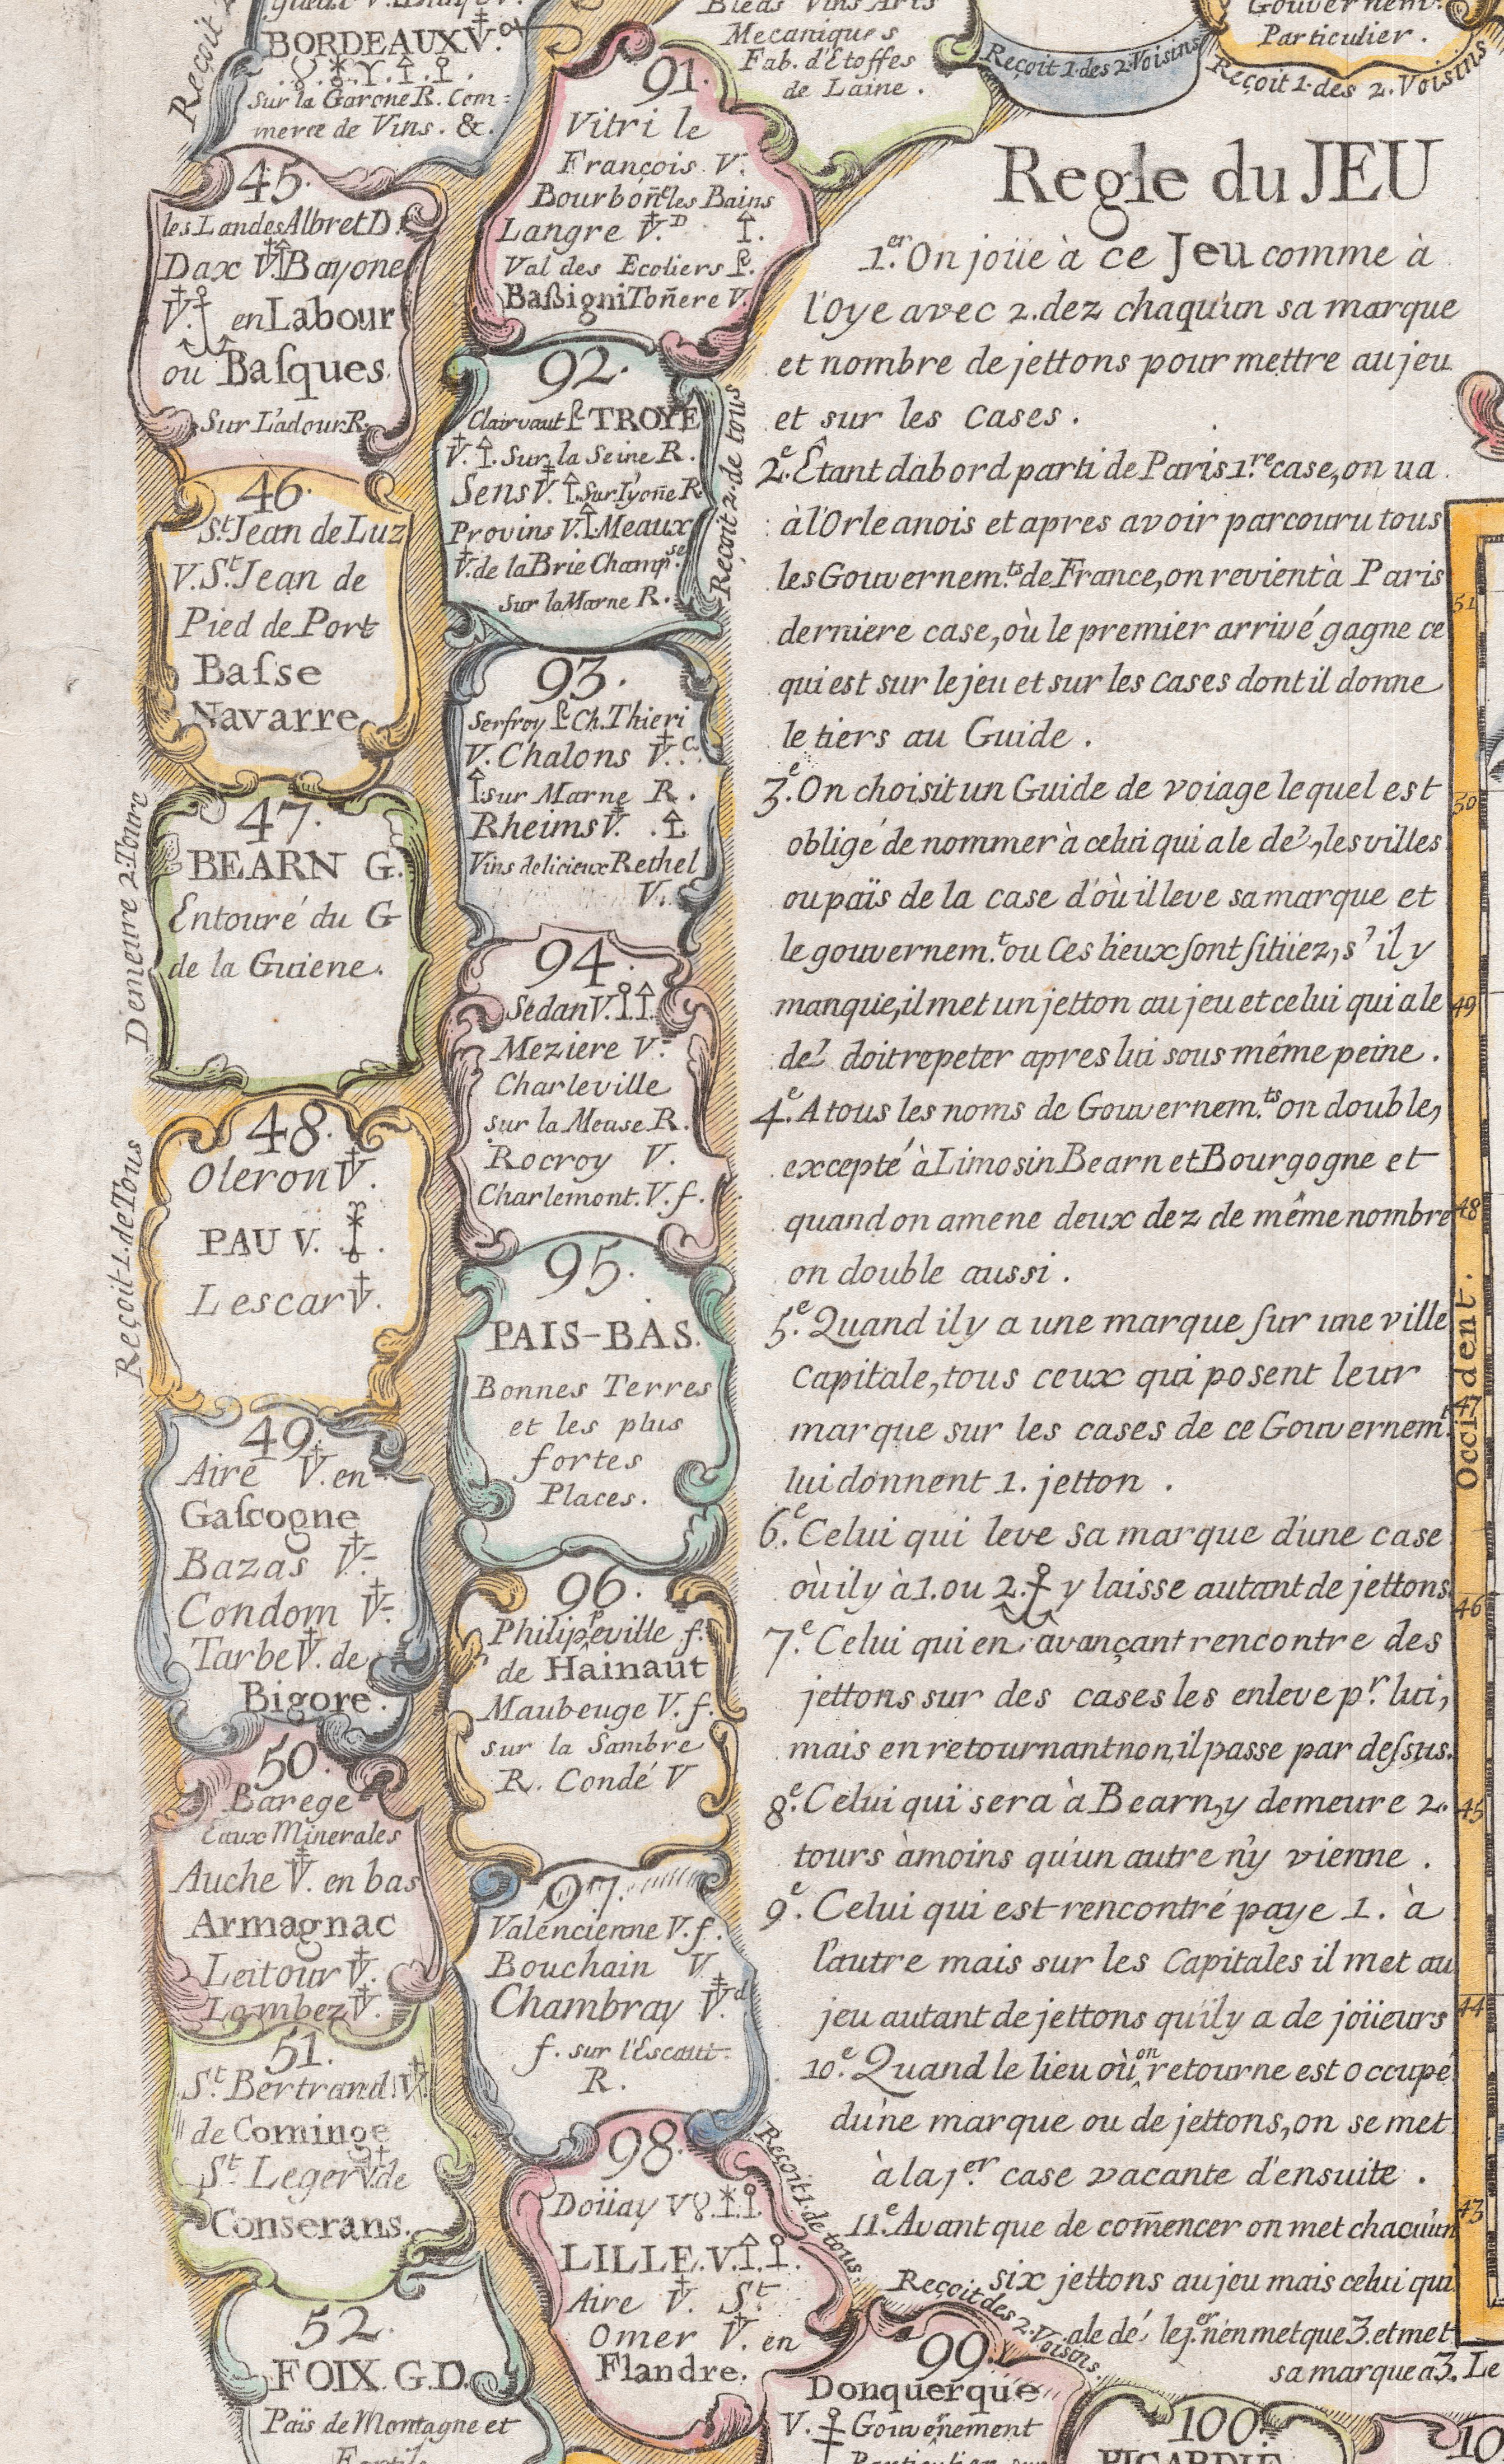 BORDEAUX V.
Sur la Garone R. Com=
merce de Vins. &.
Reçoit
45.
les Landes Albret D.
Dax V. Bayone
V. en Labour
ou Basques.
Sur L'adour R.
46.
St Jean de Luz
V. St Jean de
Pied de Port
Basse
Navarre
47.
BEARN G.
Entouré du G
de la Guiene.
Demeure 2. Tours
48.
Oleron V.
PAU V.
Lescar V.
Reçoit 1. de Tous
49.
Aire V. en
Gascogne
Bazas V.
Condom V.
Tarbe V. de
Bigore.
50.
Barege
Eaux Minerales
Auche V. en bas
Armagnac
Leitour V.
Lombez V.
51.
St Bertrand V.
de Cominge
St Leger V. de
Conserans.
52.
FOIX. G.D.
Païs de Montagne et
Fertile
Bleds Vins Arts
Mecaniques
Fab. d'Etoffes
de Laine.
91.
Vitri le
François V.
Bourboñe les Bains
Langre V. D
Val des Ecoliers
Baßigni Toñere V.
92.
Clairvaut TROYE
V. Sur la Seine R.
Sens V. Sur l'yoñe R
Provins V. Meaux
V. de la Brie Champse.
Sur la Marne R.
Reçoit 2. de tous
93.
Serfroy Ch. Thieri
V. Chalons V. C.
sur Marne R.
Rheims V.
Vins delicieux Rethel
V.
94.
Sedan V.
Meziere V.
Charleville
sur la Meuse R.
Rocroy V.
Charlemont. V. f.
95.
PAIS-BAS.
Bonnes Terres
et les plus
fortes
Places.
96.
Philippeville f.
de Hainaut
Maubeuge V. f.
sur la Sambre
R. Condé V
97.
Valencienne V. f.
Bouchain V
Chambray V. d
f. sur l'Escaut.
R.
98.
Doüay V
LILLE. V.
Aire V. St
Omer V. en
Flandre.
Reçoit 1. de tous.
99.
Donquerque
V. Gouvernement
Particulier sur
Reçoit des 2. Voisins.
100.
PICARDIE
10
Reçoit 1. des 2. Voisins
Gouvernemt.
Particulier.
Reçoit 1. des 2. Voisins
Regle du JEU
1.er On joüe à ce Jeu comme à
l'Oye avec 2. dez chaqu'un sa marque
et nombre de jettons pour mettre au jeu
et sur les Cases.
2.e Êtant dabord parti de Paris 1.re case, on va
à l'Orleanois et apres avoir parcouru tous
les Gouvernem.ts de France, on revient à Paris
derniere case, où le premier arrivé gagne ce
qui est sur le jeu et sur les Cases dont il donne
le tiers au Guide.
3.e On choisit un Guide de voiage lequel est
obligé de nommer à celui qui a le de', les villes
ou païs de la case d'où il leve sa marque et
le gouvernem.t ou Ces lieux sont sitüez, s'il y
manque, il met un jetton au jeu et celui qui a le
de' doit repeter apres lui sous même peine.
4.e A tous les noms de Gouvernem.ts on double,
excepté à Limosin Bearn et Bourgogne et
quand on amene deux dez de même nombre
on double aussi.
5.e Quand il y a une marque sur une ville
Capitale, tous ceux qui posent leur
marque sur les cases de ce Gouvernem.t
lui donnent 1. jetton.
6.e Celui qui leve sa marque d'une case
où il y à 1. ou 2. y laisse autant de jettons.
7.e Celui qui en avançant rencontre des
jettons sur des cases les enleve p.r lui,
mais en retournant non, il passe par dessus.
8.e Celui qui sera à Bearn, y demeure 2.
tours àmoins qu'un autre n'y vienne.
9.e Celui qui est rencontré paye 1. à
l'autre mais sur les Capitales il met au
jeu autant de jettons qu'il y a de joüeurs
10.e Quand le lieu où on retourne est occupé
d'une marque ou de jettons, on se met
à la 1.er case vacante d'ensuite.
11.e Avant que de com̃encer on met chacun
six jettons au jeu mais celui qui
a le dé le 1.er n'en met que 3. et met
sa marque a 3. Le
51
50
49
48
47
46
45
44
43
Occident.